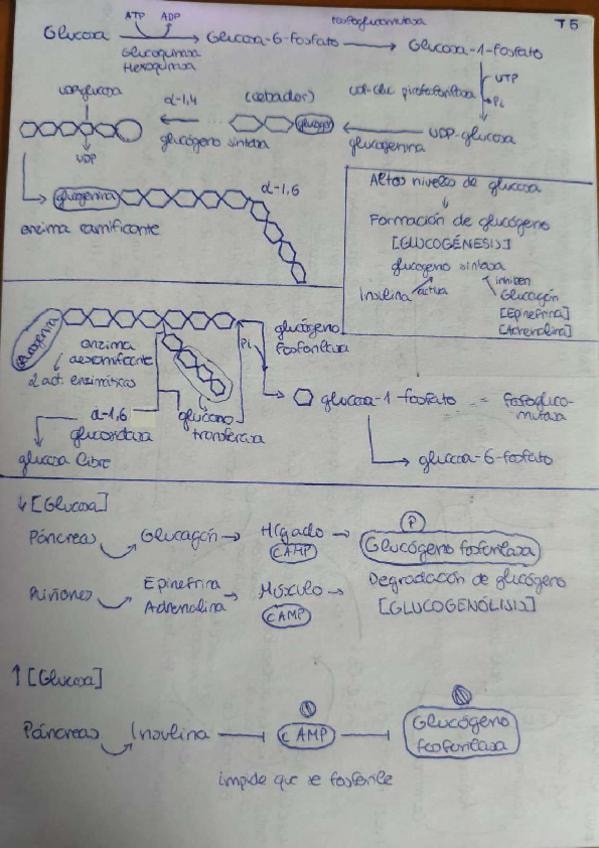 T5
ATP ADP fosfoglucomutasa
Glucosa → Glucosa-6-fosfato → Glucosa-1-fosfato
Glucoquinasa
Hexoquinasa
UTP
Pi
UDP-glucosa α-1,4 (cebador) UDP-Glic pirofosforilasa
glucóg
UDP-glucosa
glucógeno sintasa glucogenina
UDP
glucogenina α-1,6
enzima ramificante
Altos niveles de glucosa
↓
Formación de glucógeno
[GLUCOGÉNESIS]
glucogeno sintasa
Insulina activa inhiben
Glucagón
[Epinefrina]
[Adrenalina]
glucogenina
enzima desramificante
2 act. enzimáticas
Pi
glucógeno fosforilasa
α-1,6 glucosidasa
glucano transferasa
glucosa libre
glucosa-1-fosfato = fosfoglucomutasa
glucosa-6-fosfato
↓[Glucosa]
Páncreas Glucagón → Hígado → P
cAMP Glucógeno fosforilasa
Riñones Epinefrina Adrenalina → Músculo →
cAMP
Degradación de glucógeno
[GLUCOGENÓLISIS]
↑[Glucosa]
Páncreas Insulina cAMP Glucógeno fosforilasa
impide que se fosforile